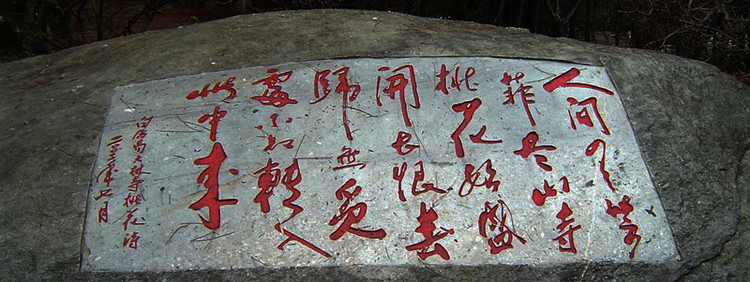 人间四月芳
菲尽山寺
桃花始盛
开长恨春
歸無觅
處不知轉入
此中来
白居易大林寺桃花诗
年七月